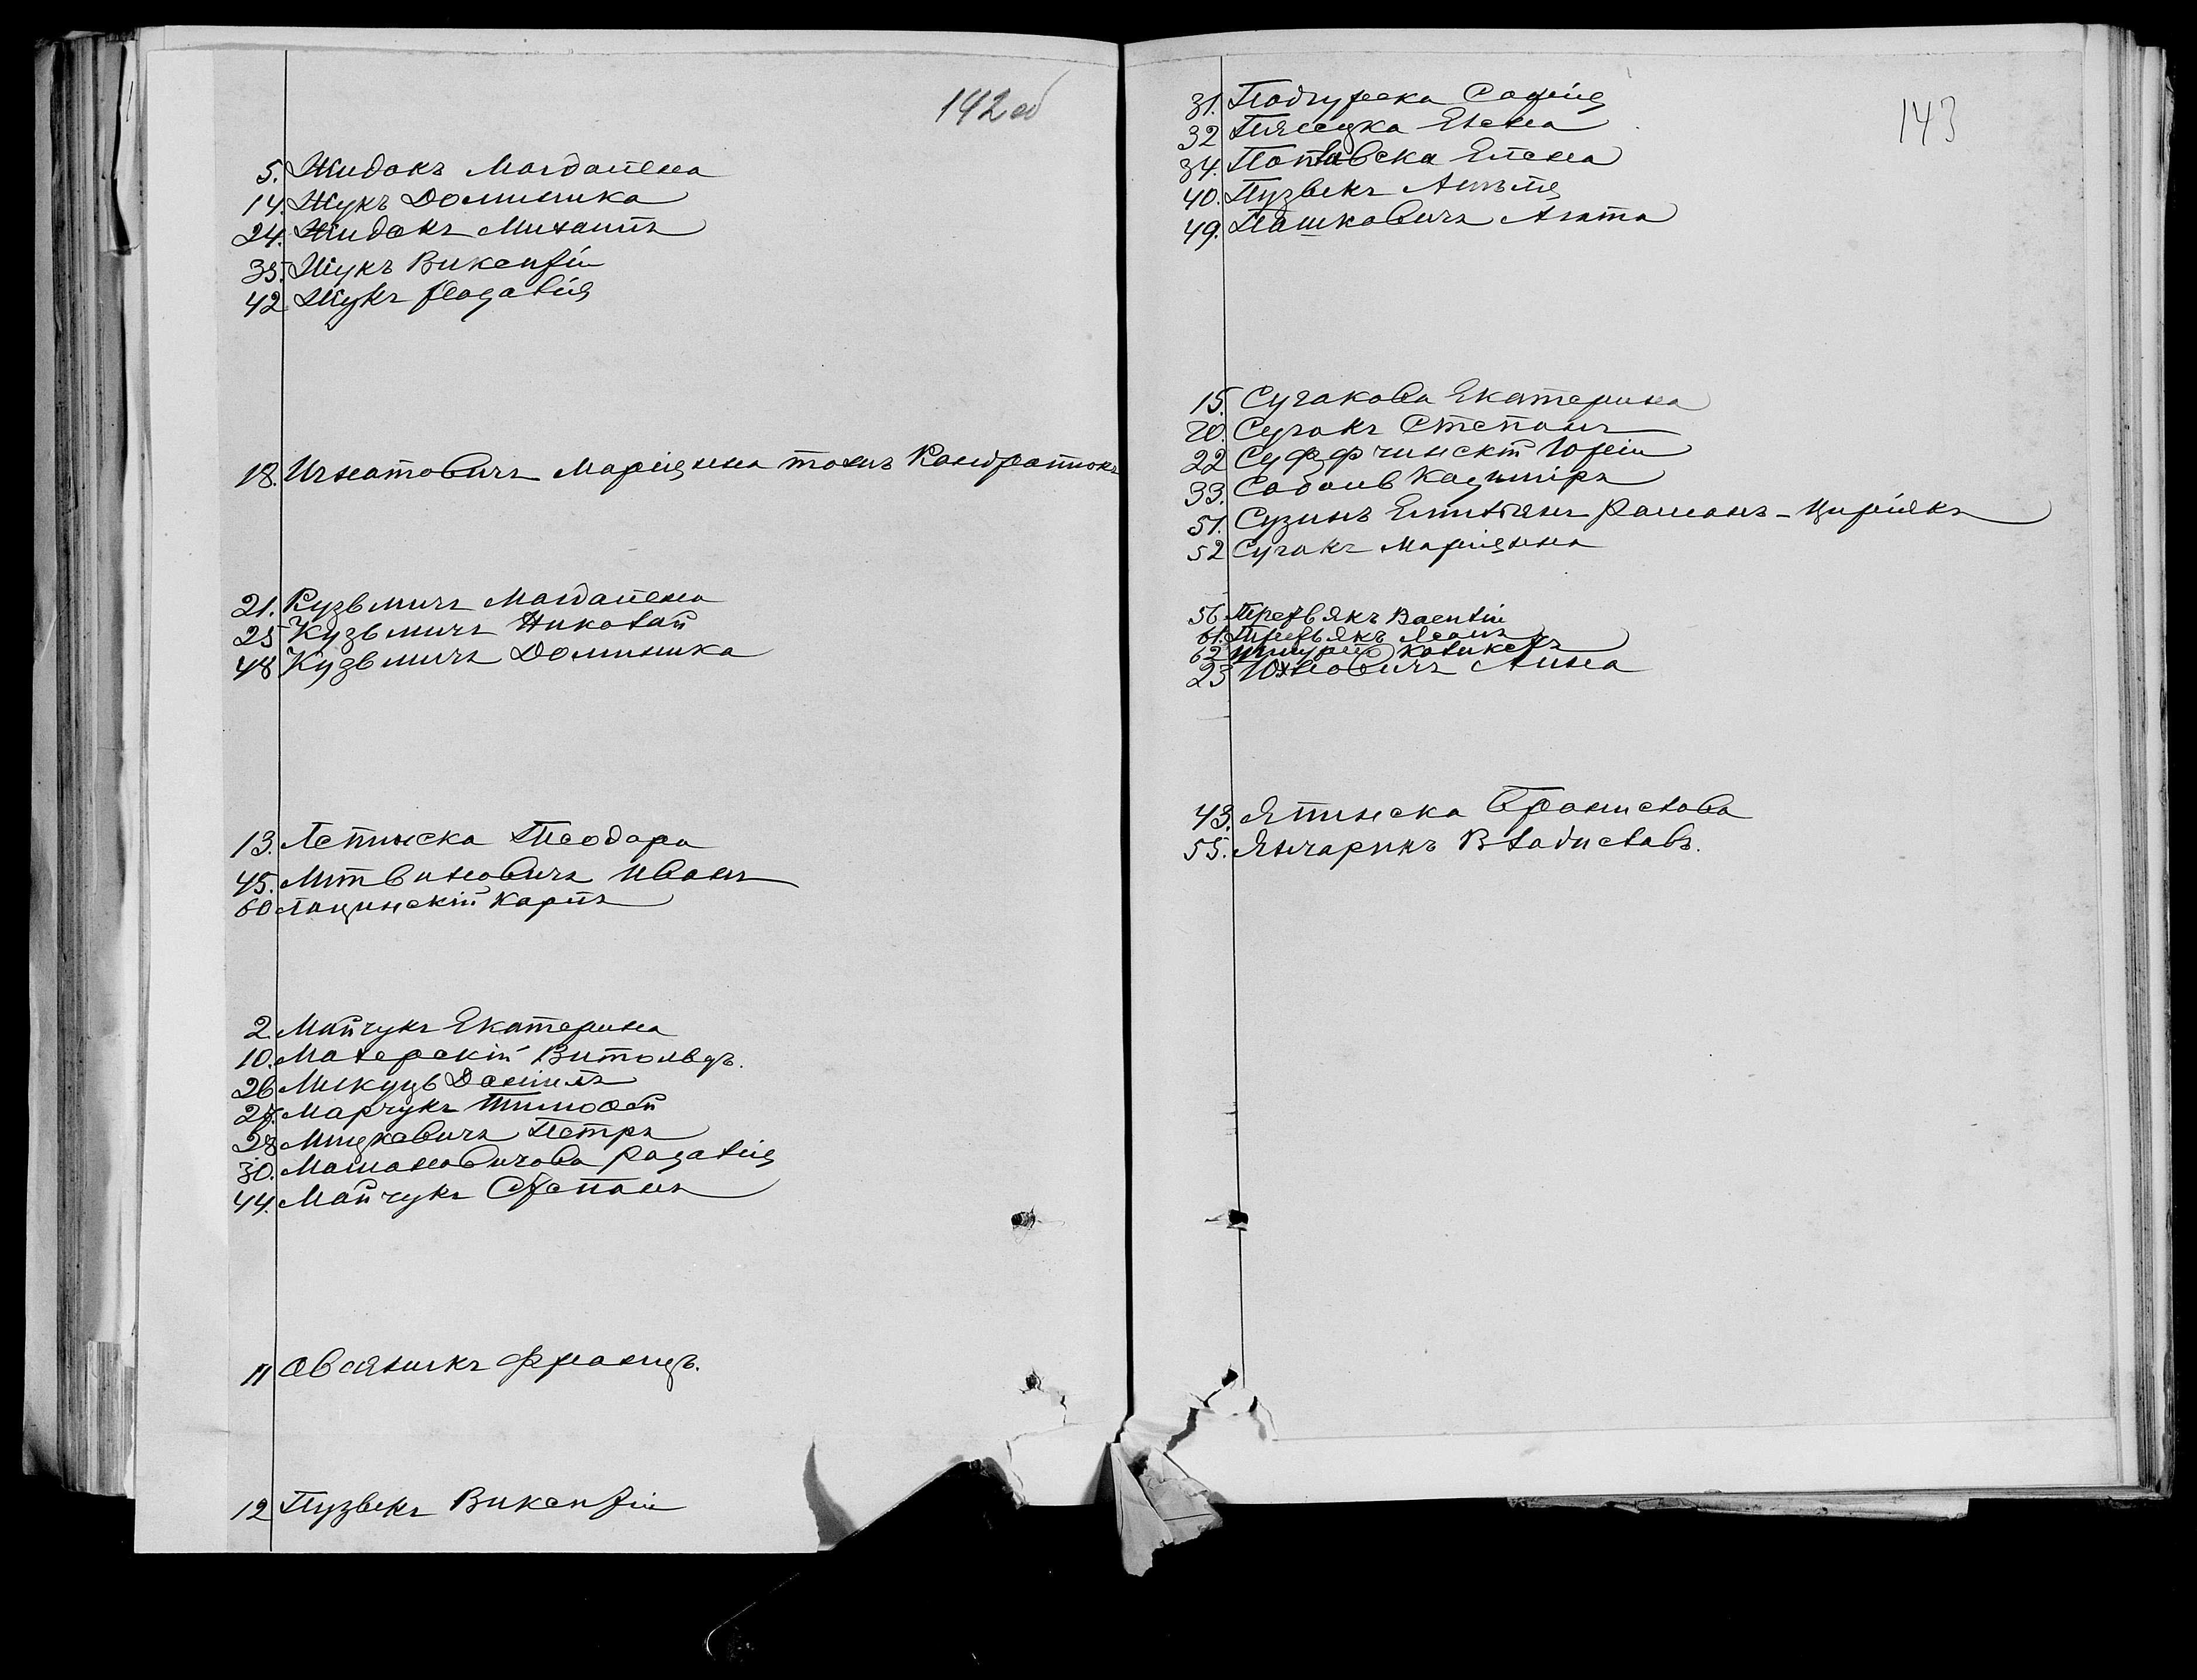 142 об
5. Жидокъ Магдалена
14. Жукъ Доминика
24. Жидокъ Михаилъ
35. Жукъ Викентій
42 Жукъ Розалія
18. Игнатовичъ Маріянна тожъ Кондратюкъ
21. Кузьмичъ Магдалена
25 Кузьмичъ Николай
48 Кузьмичъ Доминика
13. Лепинска Теодора
45. Литвиновичъ Иванъ
60 Лащинскій Карлъ
2. Майчукъ Екатерина
10. Малерскій Витольдъ.
26 Микуць Даніилъ
27. Марчукъ Тимоѳей
28 Мицкевичъ Петръ
30. Розалія
44. Майчукъ Степанъ
11 Овсяникъ Францъ.
12 Пузьекъ Викентій
143
31. Подгурска Софія
32 Пясецка Елена
34. Поплавска Елена
40. Пузьекъ
49. Пашковичъ Агата
15. Сугакова Екатерина
20. Сугакъ Степанъ
22 Суффчинскій Юрій
33. Соболь Казиміръ
51. Сузинъ Романъ-Циріякъ
52 Сугакъ Маріянна
56 Третьякъ
61. Третьякъ
62
23 Юхновичъ Анна
43. Ялинска Бронислова
55. Янчарикъ Владиславъ.